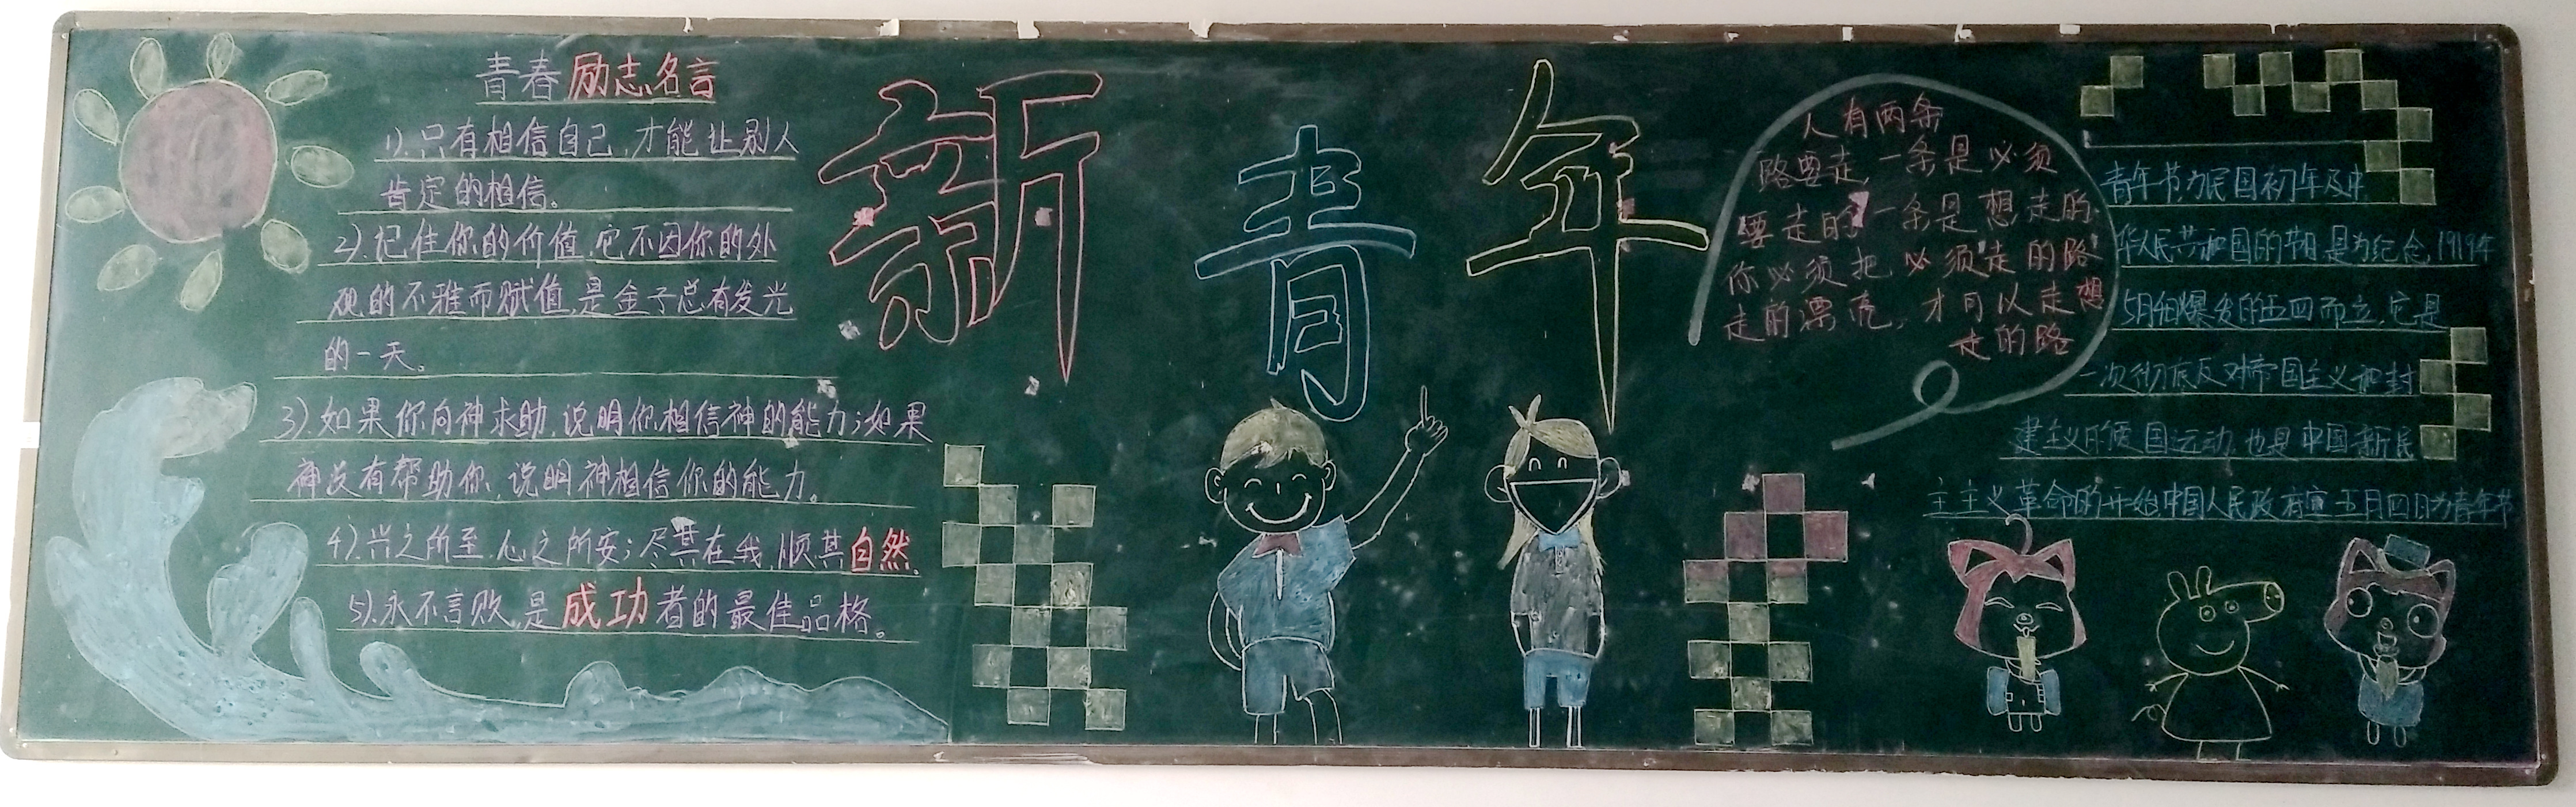 青春励志名言
1).只有相信自己,才能让别人
肯定的相信。
2).记住你的价值,它不因你的外
观的不雅而赋值,是金子总有发光
的一天。
3).如果你向神求助,说明你相信神的能力;如果
神没有帮助你,说明神相信你的能力。
4).兴之所至,心之所安;尽其在我,顺其自然.
5).永不言败,是成功者的最佳品格。
新青年
人有两条
路要走,一条是必须
要走的一条是想走的
你必须把必须走的路
走的漂亮,才可以走想
走的路
青年节,为民国初年及中
华人民共和国的节日,是为纪念1919年
5月4日爆发的五四而立,它是
一次彻底反对帝国主义和封
建主义的爱国运动,也是中国新民
主主义革命的开始,中国人民政有宣五月四日为青年节